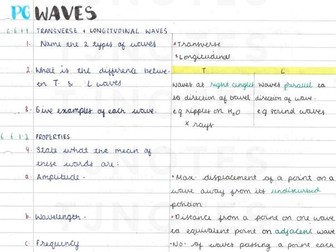 P6 WAVES
6.6.1.1 TRANSVERSE + LONGITUDINAL WAVES
1. Name the 2 types of waves
•Transverse
•Longitudinal
2. What is the difference betwe
en T & L waves
T L
Waves at right angles to direction of travel
Waves parallel to direction of wave
3. Give examples of each wave.
e.g ripples on H₂O
x rays
e.g sound waves
6.6.1.2 PROPERTIES
4. State what the mean of
these words are:
a. Amplitude -
•Max displacement of a point on a
wave away from its undisturbed
position
b. Wavelength -
•Distance from a point on one wave
to equivalent point on adjacent wave
c. Frequency
•No of waves passing a point each